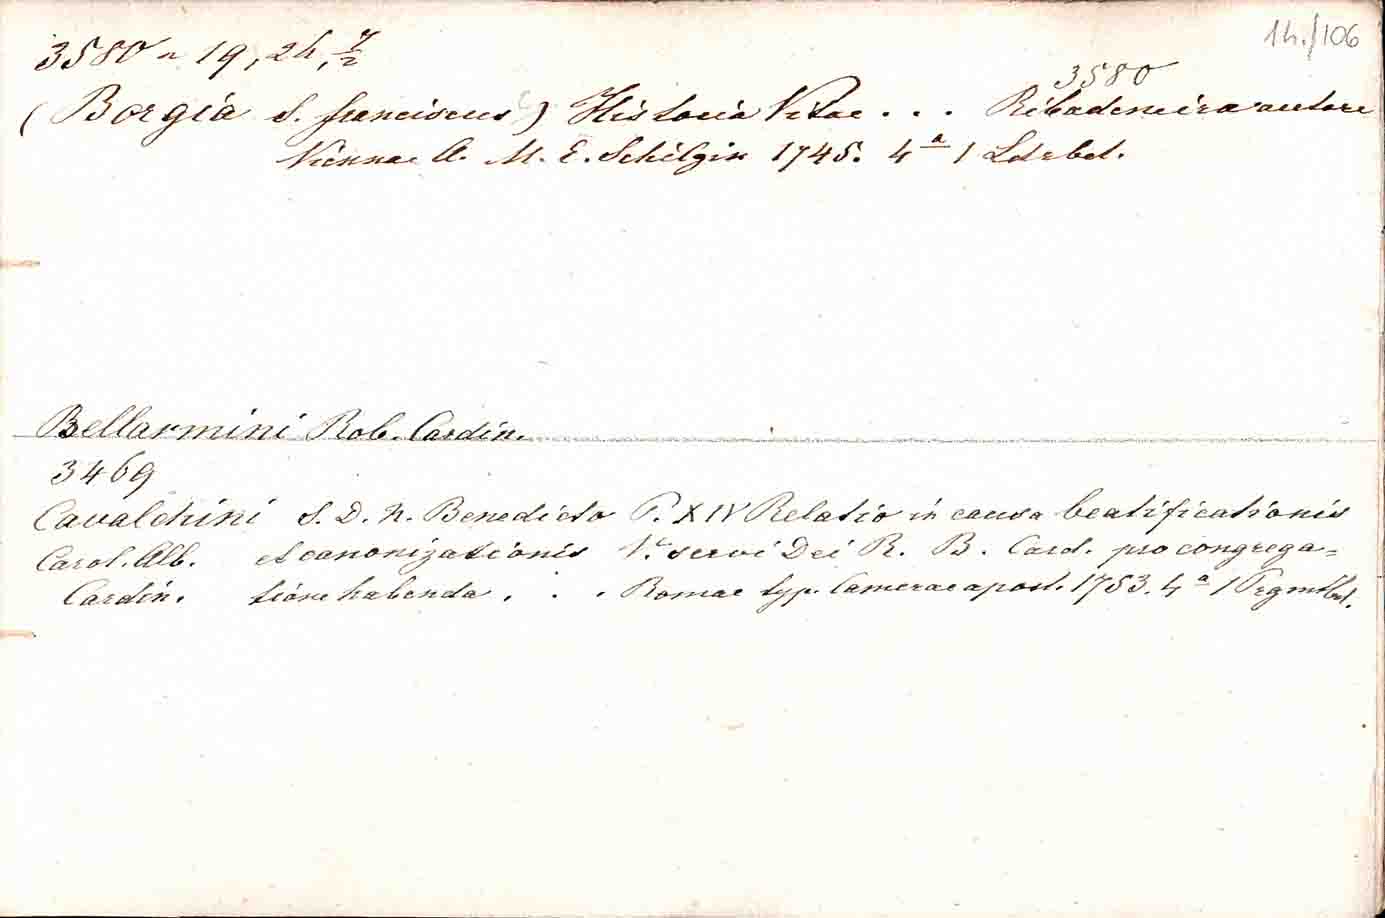 14./106
3580 19, 24,
3580
(Borgia S. Franciscus) Historia Vitae . . . Ribadeneira autore
Viennae A. M. E. Schilgin 1745. 4ᵃ 1 Ldrbd.
Bellarmini Rob. Cardin.
3469
Cavalchini S. D. N. Benedicto P. XIV Relatio in causa beatificationis
Carol. Alb. et canonizationis V. servi Dei R. B. Card. pro congrega=
Cardin. tione habenda . . . Romae typ. Camerae apost. 1753. 4ᵃ 1 Prgmtbd.